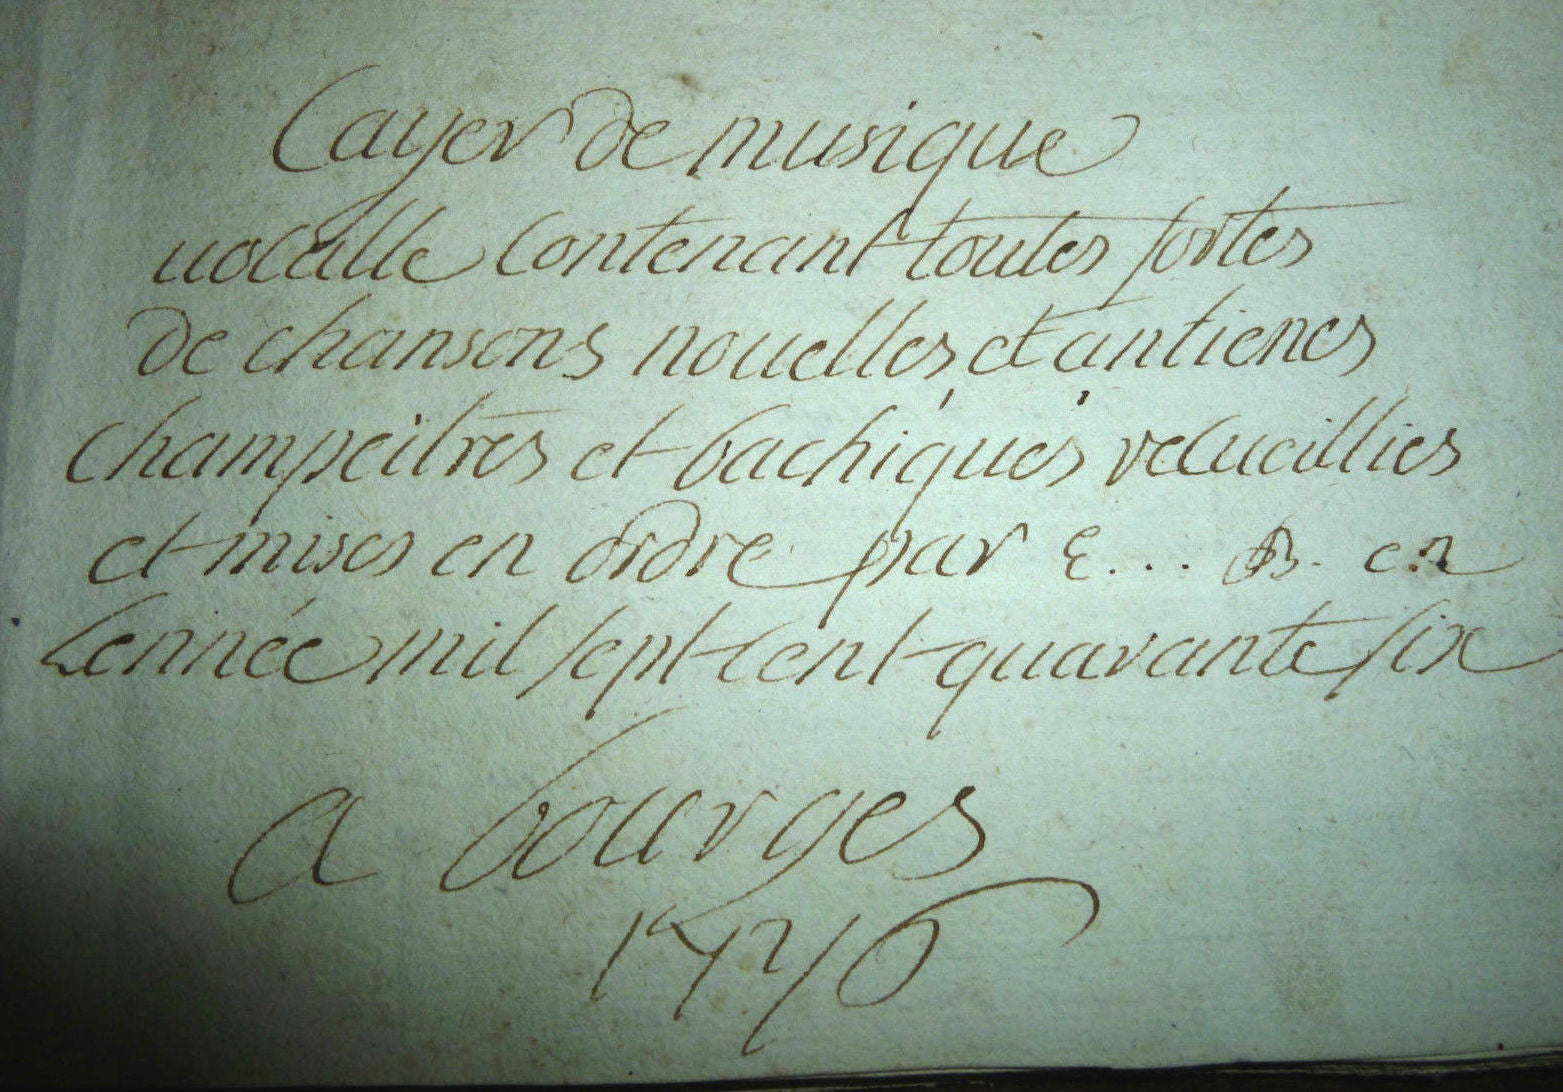 Cayer de musique
uocalle contenant toutes sortes
de chansons nouelles et antienes
champeitres et bachiques recueillies
et mises en ordre par E... B. en
Lennée mil sept cent quarante six
a bourges
1746